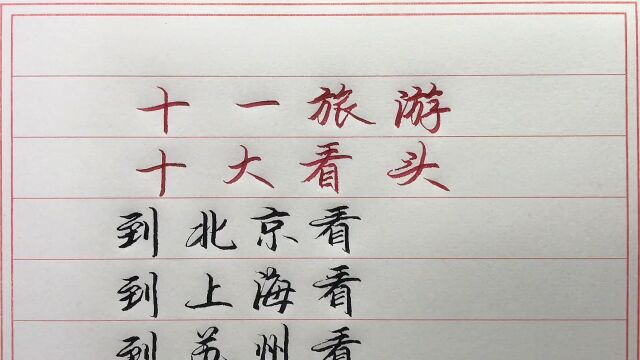 十一旅游
十大看头
到北京看
到上海看
到苏州看